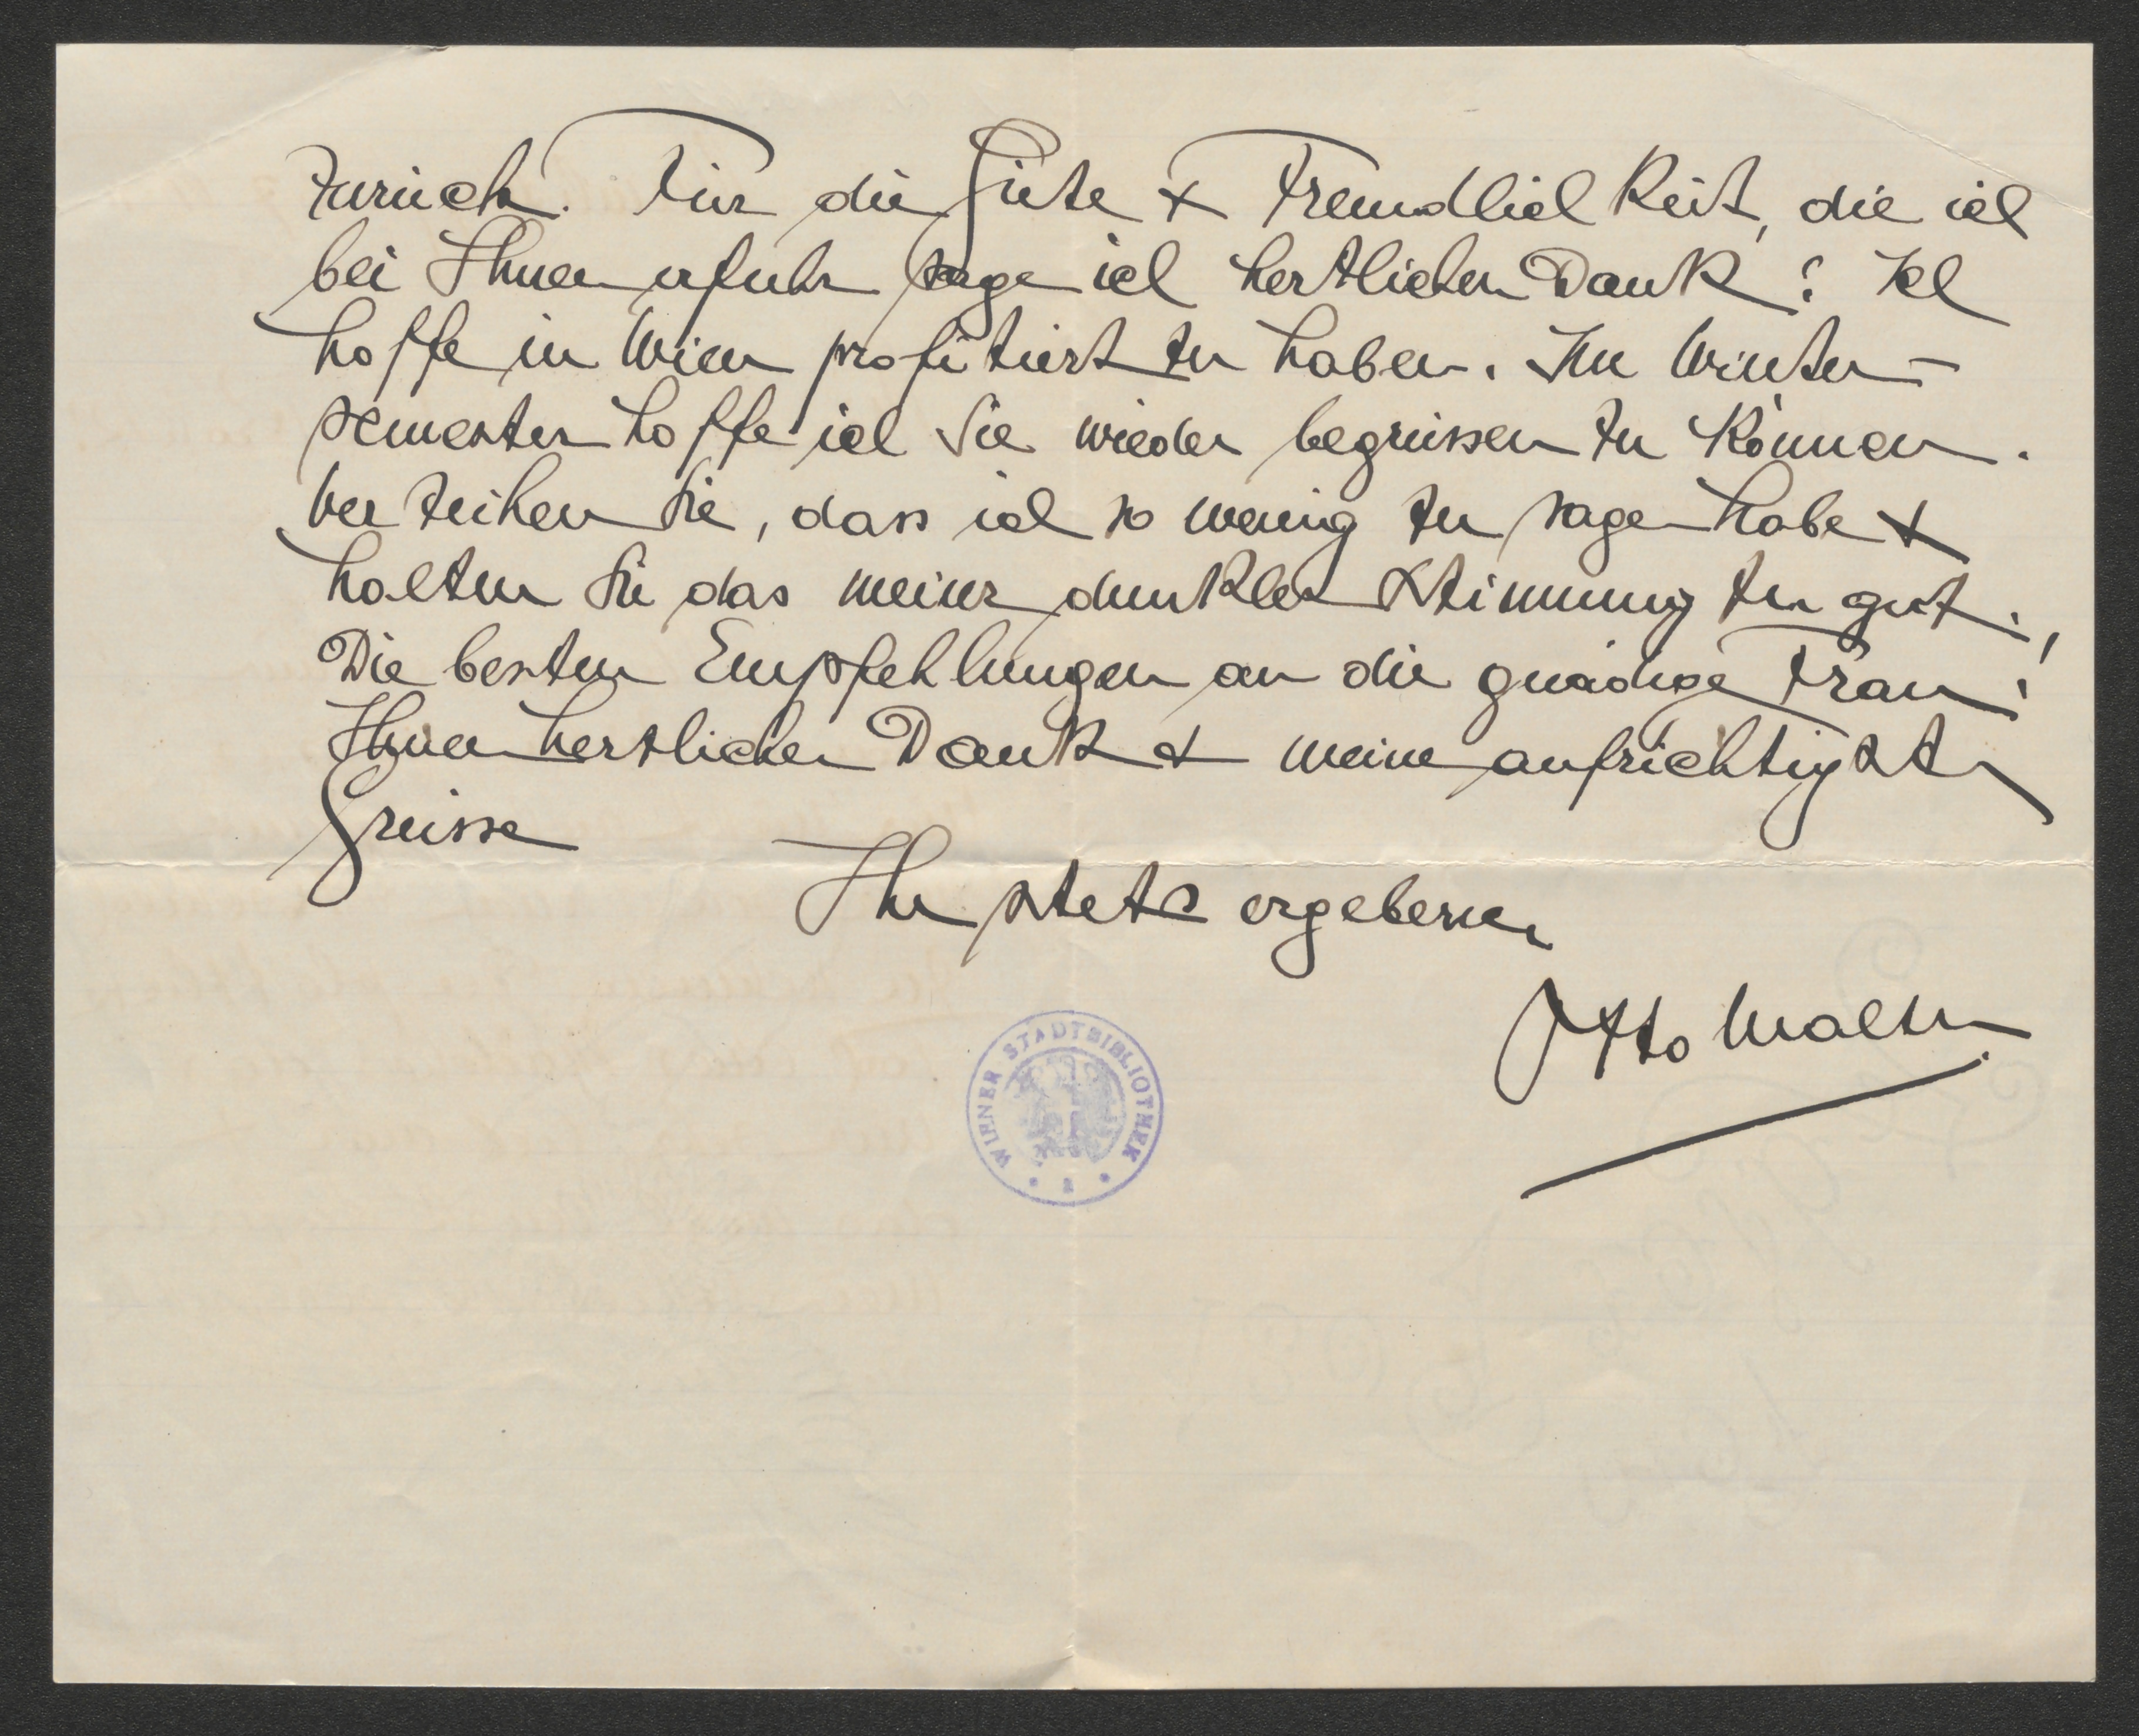 zurück. Für die Güte & Freundlichkeit, die ich
bei Ihnen erfuhr sage ich herzlichen Dank! Ich
hoffe in Wien profitiert zu haben. Im Winter-
semester hoffe ich Sie wieder begrüssen zu können.
Verzeihen Sie, dass ich so wenig zu sagen habe &
halten Sie das meiner dunklen Stimmung zu gut.
Die besten Empfehlungen an die gnädige Frau!
Ihnen herzlichen Dank & meine aufrichtigsten
Grüsse
Ihr stets ergebener
Otto Walter
WIENER STADTBIBLIOTHEK